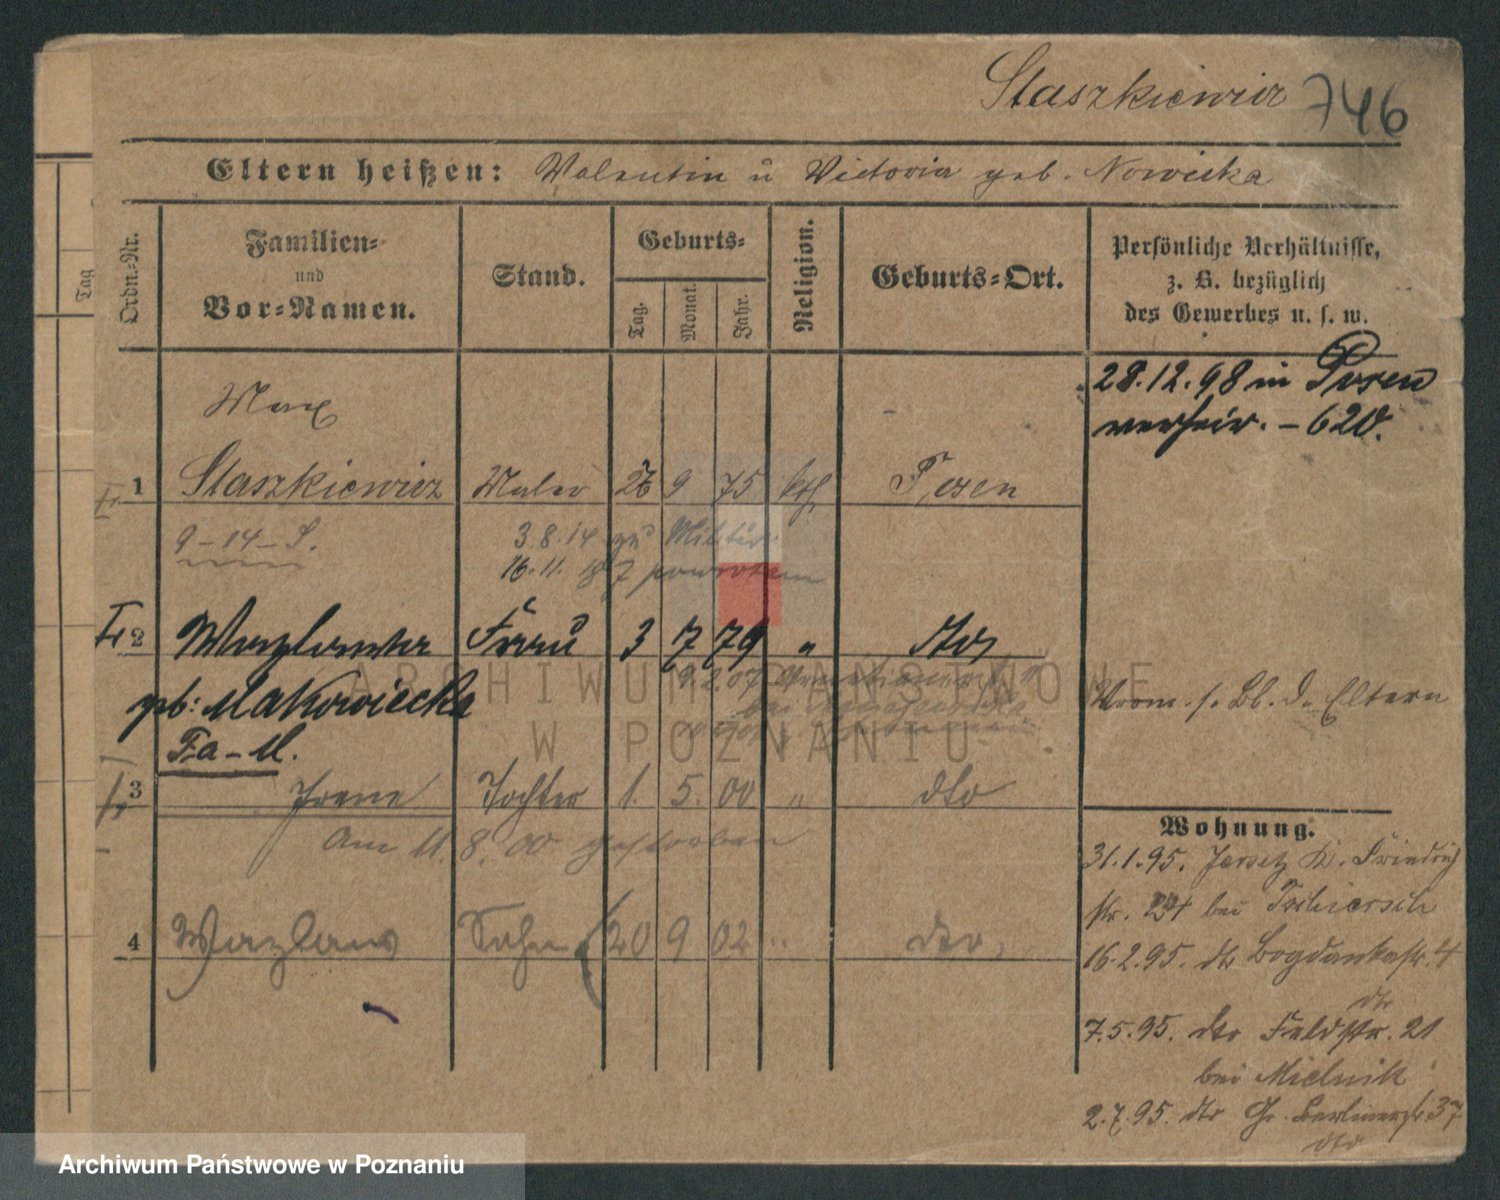 Staszkiewicz 746
Eltern heißen: Valentin u Victoria geb. Nowicka
Tag
Ordn.-Nr.
Familien-
und
Vor-Namen.
Stand.
Geburts-
Tag.
Monat.
Jahr.
Religion.
Geburts-Ort.
Persönliche Verhältnisse,
z. B. bezüglich
des Gewerbes u. s. w.
28.12.98 in Posen
verheir. - 620.
Max
1 Staszkiewicz Maler 26 9 75 kth Posen
9-14-S.
3.8.14 zu Militär
16.11. powrotem
2 Wazlawa Frau 3 7 79 " dto
geb: Makowiecka
Fa-M.
9.2.07
Vrom. s. Bl. d. Eltern
3 Irene Tochter 1. 5. 00 " dto
Am 11. 8. 00 gestorben
4 Wazlaw Sohn 20 9 02 " dto
Wohnung.
31.1.95. Jersitz K. Friedrich
str. 24 bei
16.2.95. dto Bogdankastr. 4
dto
7.5.95. dto Feldstr. 21
bei Mielnik
2.7.95. dto Gr. Berlinerstr. 37
dto
ARCHIWUM PAŃSTWOWE
W POZNANIU
Archiwum Państwowe w Poznaniu